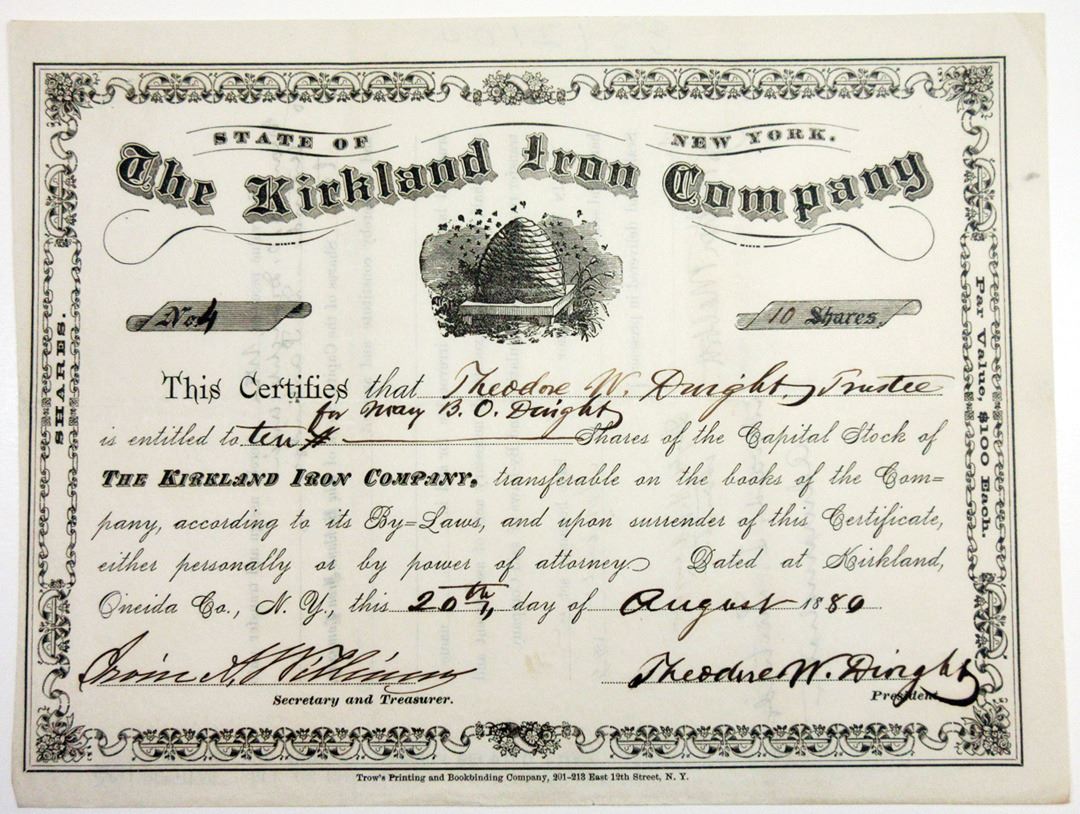 STATE OF NEW YORK.
The Kirkland Iron Company
No. 4
10 Shares.
SHARES.
Par Value, $100 Each.
This Certifies that Theodore W. Dwight, Trustee
for May B. O. Dwight
is entitled to ten Shares of the Capital Stock of
THE KIRKLAND IRON COMPANY, transferable on the books of the Com=
pany, according to its By=Laws, and upon surrender of this Certificate,
either personally or by power of attorney Dated at Kirkland,
Oneida Co., N. Y., this 20th, day of August 1880
Theodore W. Dwight
Secretary and Treasurer.
President
Trow's Printing and Bookbinding Company, 201-213 East 12th Street, N. Y.